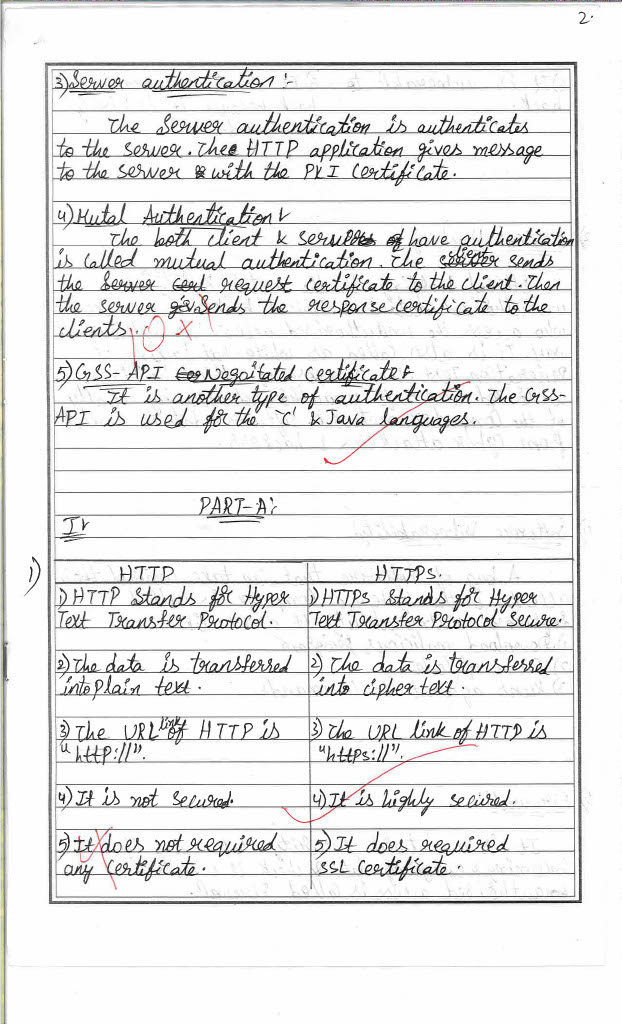 2.
3) Server authentication :-
The Server authentication is authenticates
to the server. The HTTP application gives message
to the server with the PKI Certificate.
4) Mutal Authentication
The both client & servers have authentication
is called mutual authentication. The client sends
the request certificate to the client. Then
the server sends the response certificate to the
clients.
10
5) GSS-API Negoitated Certificate
It is another type of authentication. The GSS-
API is used for the 'C' & Java languages.
PART-A:
I
1)
HTTP HTTPs.
1) HTTP Stands for Hyper 1) HTTPs Stands for Hyper
Text Transfer Protocol. Text Transfer Protocol Secure.
2) The data is transferred 2) The data is transferred
into plain text. into cipher text.
3) The URL link of HTTP is 3) The URL link of HTTP is
"http://". "https://".
4) It is not secured. 4) It is highly secured.
5) It does not required 5) It does required
any certificate. SSL Certificate.
4